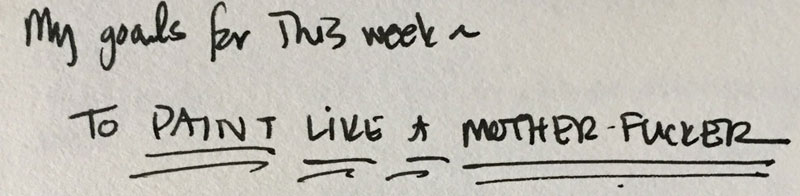 My goals for This week ~
To PAINT LIKE A MOTHER-FUCKER